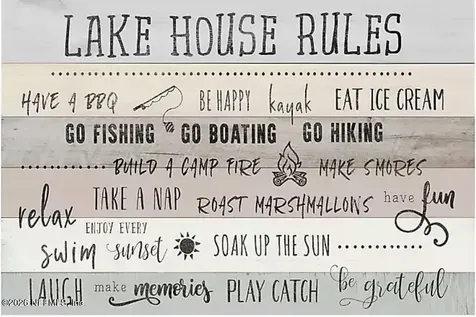 LAKE HOUSE RULES
HAVE A BBQ BE HAPPY kayak EAT ICE CREAM
GO FISHING GO BOATING GO HIKING
BUILD A CAMP FIRE MAKE SMORES
relax TAKE A NAP ROAST MARSHMALLOWS have fun
swim ENJOY EVERY sunset SOAK UP THE SUN
LAUGH make memories PLAY CATCH be grateful